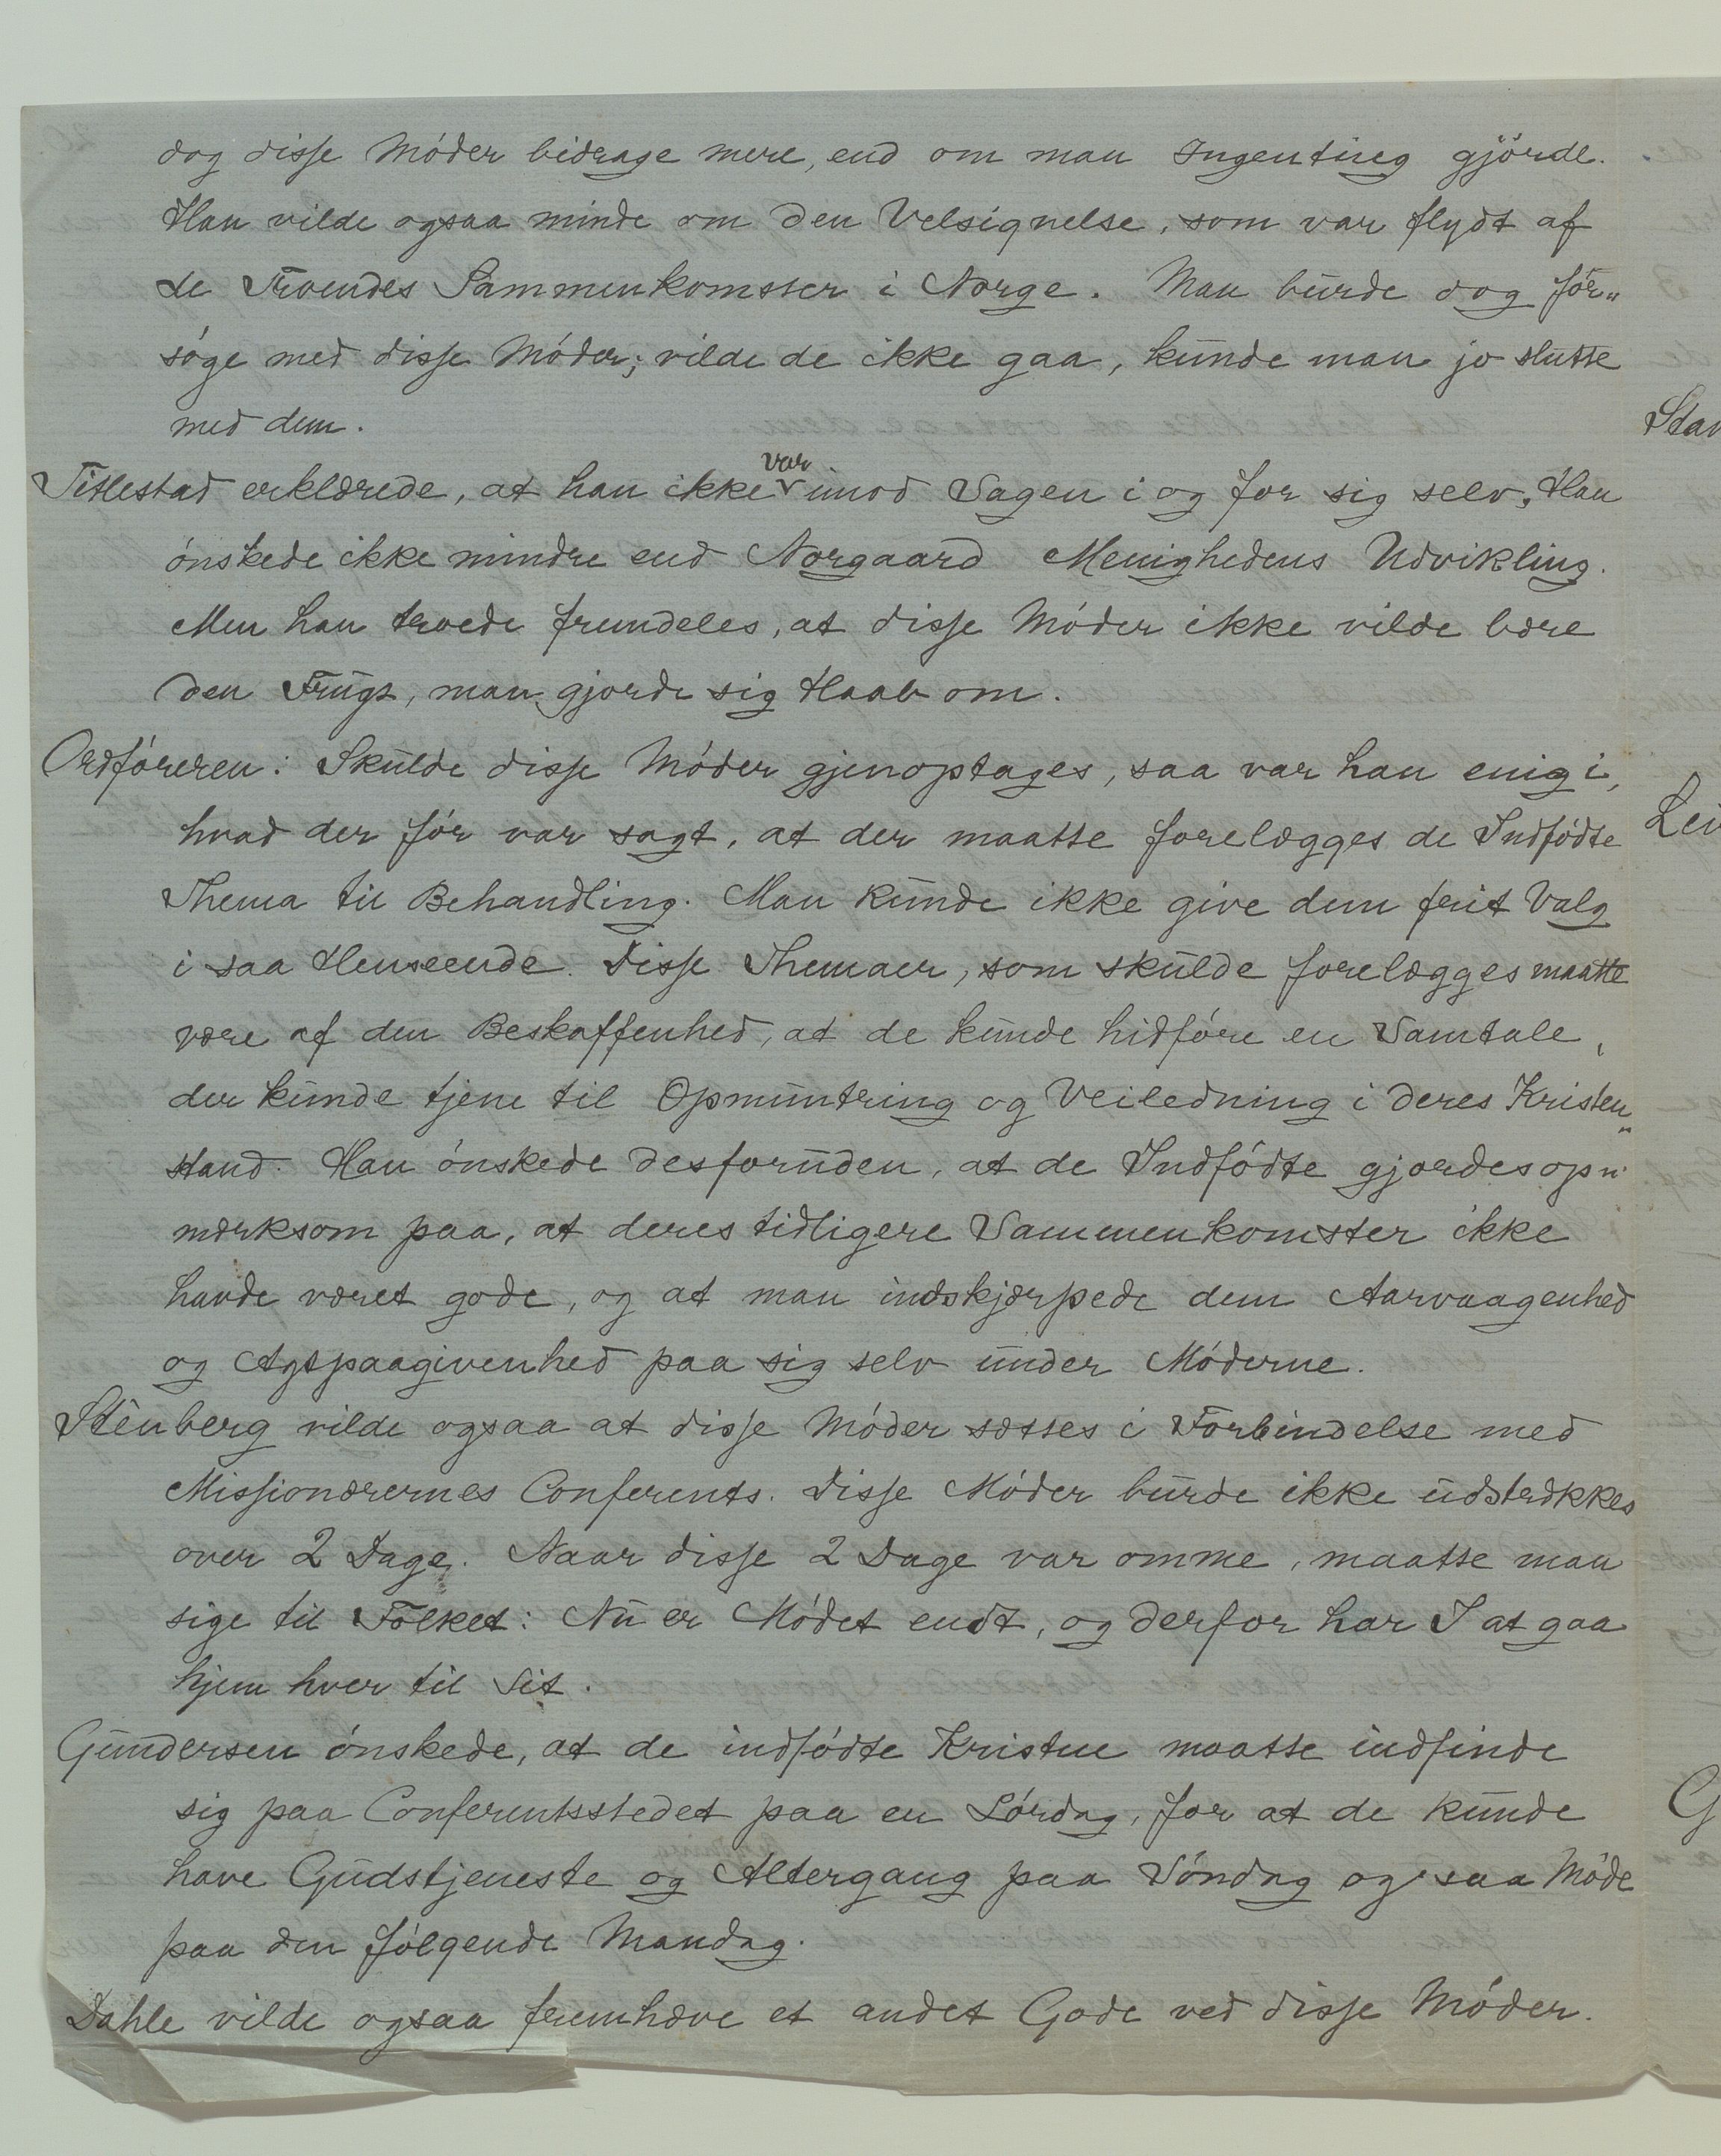 dog disse Möder bidrage mere, end om man Ingenting gjörde.
Han vilde ogsaa minde om den Velsignelse, som var flydt af
de Troendes Sammenkomster i Norge. Man burde dog för„
söge med disse Möder; vilde de ikke gaa, kunde man jo slutte
med dem.
Titlestad erklærede, at han ikke var imod Sagen i og for sig selv; Han
önskede ikke mindre end Norgaard Menighedens Udvikling.
Men han troede fremdeles, at disse Möder ikke vilde bære
den Frugt, man gjorde sig Haab om.
Ordföreren: Skulde disse Möder gjenoptages, saa var han enig i,
hvad der för var sagt, at der maatte forelægges de Indfödte
Thema til Behandling. Man kunde ikke give dem frit Valg
i saa Henseende. Disse Themaer, som skulde forelægges maatte
være af den Beskaffenhed, at de kunde hidföre en Samtale,
der kunde tjene til Opmuntring og Veiledning i deres Kristen„
stand. Han önskede desforuden, at de Indfödte gjordes op„
mærksom paa, at deres tidligere Sammenkomster ikke
havde været gode, og at man indskjærpede dem Aarvaagenhed
og Agtpaagivenhed paa sig selv under Möderne.
Stenberg vilde ogsaa at disse Möder sættes i Forbindelse med
Missionærernes Conferents. Disse Möder burde ikke udstrækkes
over 2 Dage. Naar disse 2 Dage var omme, maatte man
sige til Folket: Nu er Mödet endt, og derfor har I at gaa
hjem hver til Sit.
Gundersen önskede, at de indfödte Kristne maatte indfinde
sig paa Conferentsstedet paa en Lördag, for at de kunde
have Gudstjeneste og Altergang paa Söndag og saa Möde
paa den fölgende Mandag.
Dahle vilde ogsaa fremhæve et andet Gode ved disse Möder.